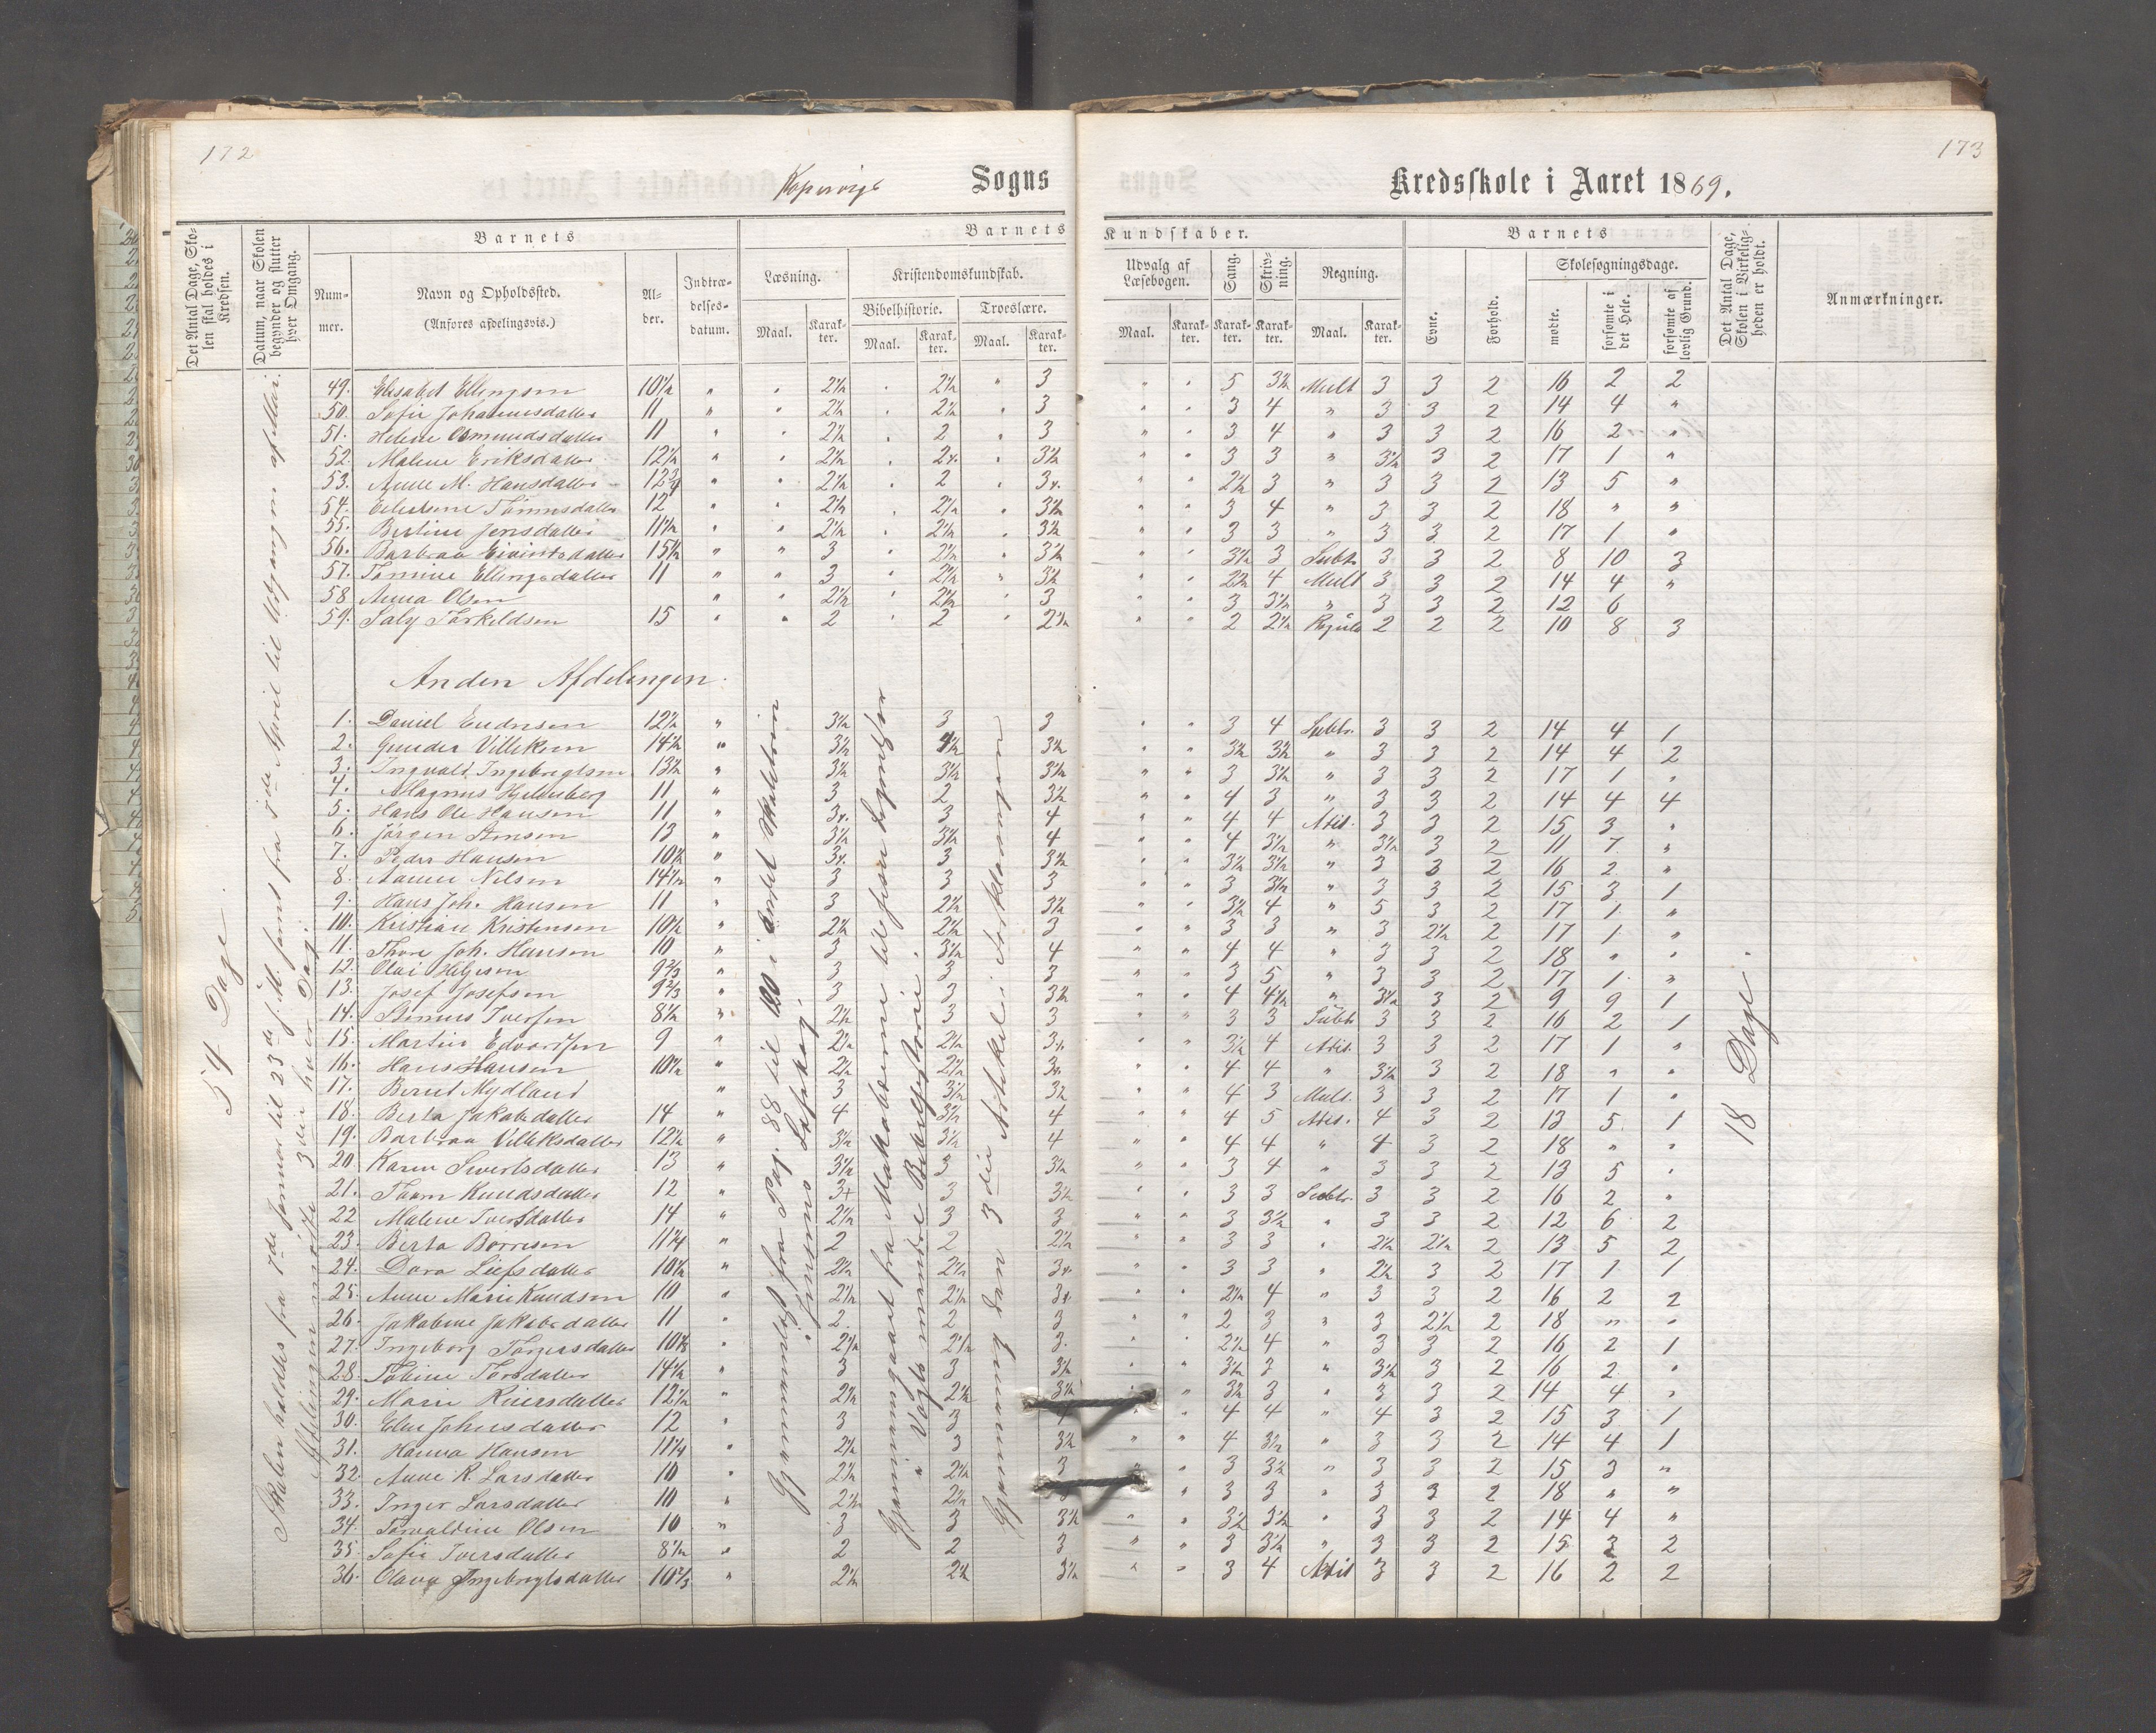 172
173
Sogns
Kredsskole i Aaret 1869.
Det Antal Dage, Skolen skal holdes i Kredsen.
Datum, naar Skolen begynder og slutter hver Omgang.
Barnets
Nummer.
Navn og Opholdssted.
(Anføres afdelingsvis.)
Alder.
Indtrædelsesdatum.
Barnets
Kundskaber.
Læsning.
Maal.
Karakter.
Kristendomskundskab.
Bibelhistorie.
Maal.
Karakter.
Troeslære.
Maal.
Karakter.
Udvalg af Læsebogen.
Maal.
Karakter.
Sang.
Karakter.
Skrivning.
Karakter.
Regning.
Maal.
Karakter.
Barnets
Evne.
Forhold.
Skolesøgningsdage.
mødte.
forsømte i det Hele.
forsømte af lovlig Grund.
Det Antal Dage, Skolen i Virkeligheden er holdt.
Anmærkninger.
49. Elisabet Ellingsen 10½ " " 2½ " 2½ " 3 " " 5 3½ Mult 3 3 2 16 2 2
50. Sofie Johannesdatter 11 " " 2½ " 2½ " 3 " " 3 4 " 3 3 2 14 4 "
51. Helene Osmundsdatter 11 " " 2½ " 2 " 3 " " 3 4 " 3 3 2 16 2 "
52. Malene Eriksdatter 12½ " " 2½ " " 3½ " " 3 3 " 3½ 3 2 17 1 "
53. Anne M. Hansdatter 12¾ " " 2½ " 2 " " " 2½ 3 " 3 3 2 13 5 "
54. 12 " " 2½ " 2½ " 3½ " " 3 4 " 3 3 2 18 " "
55. Bertine Jensdatter 11½ " " 2½ " 2½ " 3½ " " 3 3 " 3 3 2 17 1 "
56. Barbraa 15½ " " 3 " 2½ " 3½ " " 3½ 3 Subtr 3 3 2 8 10 3
57. Tomine Ellingsdatter 11 " " 3 " 2½ " 3½ " " 2½ 4 Mult 3 3 2 14 4 "
58. Anna Olsen " " 2½ " 2½ " 3 " " 3 3½ " 3 3 2 12 6
59. Saly Torkildsen 15 " " 2 " 2 " 2½ " " 2 2½ 2 2 2 10 8 3
Anden Afdelingen.
1. Daniel Endresen 12½ " 3½ 3 3 " " 3 4 Subtr. 3 3 2 14 4 1
2. Gunder Villiksen 14½ " 3½ 3½ " " 3½ 3½ " 3 3 2 14 4 2
3. Ingvald Ingebregtsen 13½ " 3½ 3½ 3½ " " 3 3½ " 3 3 2 17 1 "
4. Magnus 11 " 3 2 3½ " " 4 3 " 3 3 2 14 4 4
5. Hans Ole Hansen 11 " 3 4 " " 4 4 Adit. 3 3 2 15 3 "
6. Jørgen 13 " 3½ 3½ 4 " " 4 3½ " 3½ 3 2 11 7 "
7. Peder Hansen 10½ " 3 3½ " " 3½ 3½ " 3 3 2 16 2 "
8. Nilsen 14½ " 3 3 3 " " 3 3½ " 3 3 2 15 3 1
9. Hans Joh. Hansen 11 " 3 2½ 3½ " " 3½ 4 " 5 3 2 17 1 "
10. Kristian Kristensen 10½ " 2½ 2½ 3 " " 3 3 " 3 2½ 2 17 1 "
11. Thore Joh. Hansen 10 " 3 3½ 4 " " 4 4 " 3 3 2 18 " "
12. Olai Helgesen 9⅔ " 3 3 3 " " 3 5 " 3 3 2 17 1 "
13. Josef Josefsen 9⅔ " 3 3 3½ " " 4 4½ " 3½ 3 2 9 9 1
14. Iversen 8½ " 2½ 3 3 " " 3 3 Subtr 3 3 2 16 2 1
15. Martin Edvardsen 9 " 2½ 2½ " " 3½ 4 Adit. 3 3 2 17 1 "
16. Hans Hansen 10½ " 2½ 2½ " " 4 4 " 3½ 3 2 18 " "
17. Bernt Mydland " 3 3½ 3½ " " 4 3 Mult. 3 3 2 17 1 "
18. Berta Jakobsdatter 14 " 4 3½ 4 " " 4 5 Adit. 4 3 2 13 5 1
19. Barbraa Villiksdatter 12½ " 3½ 3½ 4 " " 4 4 " 4 3 2 18 " "
20. Karen Sivertsdatter 13 " 3½ 3 3½ " " 3 4 " 3 3 2 13 5 "
21. Knudsdatter 12 " 3+ 3 3½ " " 3 3 Subtr. 3 3 2 16 2 "
22. Malene Iversdatter 14 " 2½ 3 3 " " 3 3½ " 3 3 2 12 6 2
23. Berta Borresen 11¼ " 2 2 2½ " " 3 3 " 2½ 2½ 2 13 5 2
24. Dora 10½ " 2½ 2½ " " 3 3 " 2½ 3 2 17 1 1
25. Anne Marie Knudsen 10 " 2½ 2½ " " 2½ 4 " 3 3 2 16 2 2
26. Jakobine Jakobsdatter 11 " 2 2 3 " " 2 3 " 3 2½ 2 18 " "
27. Ingeborg Torgersdatter " 2½ 2½ 3 " " 2½ 4 " 3 3 2 16 2 1
28. Tobine Torsdatter 14½ " 3 3 3½ " " 3½ 3 " 3½ 3 2 16 2 "
29. Marie 12½ " 2½ 2½ 3½ " " 3½ 3 " 3 3 2 14 4 "
30. Johnsdatter 12 " 3 3 4 " " 4 4 " 4 3 2 15 3 1
31. Hanna Hansen 11¼ " 2½ 3 3½ " " 4 3½ " 3 3 2 14 4 1
32. Anne R. Larsdatter 10 " 2½ 2½ 3 " " 3 3½ " 3 3 2 15 3 "
33. Inger Larsdatter 10 " 2½ 2½ " 3 3 " 3 3 2 18 " "
34. Torvaldine Olsen 10 " 3 3 3½ " " 3½ 3½ " 3 3 2 14 4 "
35. Sofie Iversdatter 8½ " 2 2 3 " " 3 3½ " 3 3 2 15 3 2
36. Olava Ingebregtsdatter 10⅔ " 2½ 2½ 3½ " " 3 4 Adit 3 3 2 16 2 2
54 Dage.
Skolen holdtes fra 7de Januar til 23de samt fra 7de April til Udgangen af Mai.
Afdelingen mødte 3die hver Dag.
Gjennemgaaet fra Pag. 88 til 120 i
Jensens Læsebog.
Gjennemgaaet fra Makabæerne til
Vogts mindre Bibelhistorie.
Gjennemgaaet den 3die Artikel i Forklaringen
18 Dage.